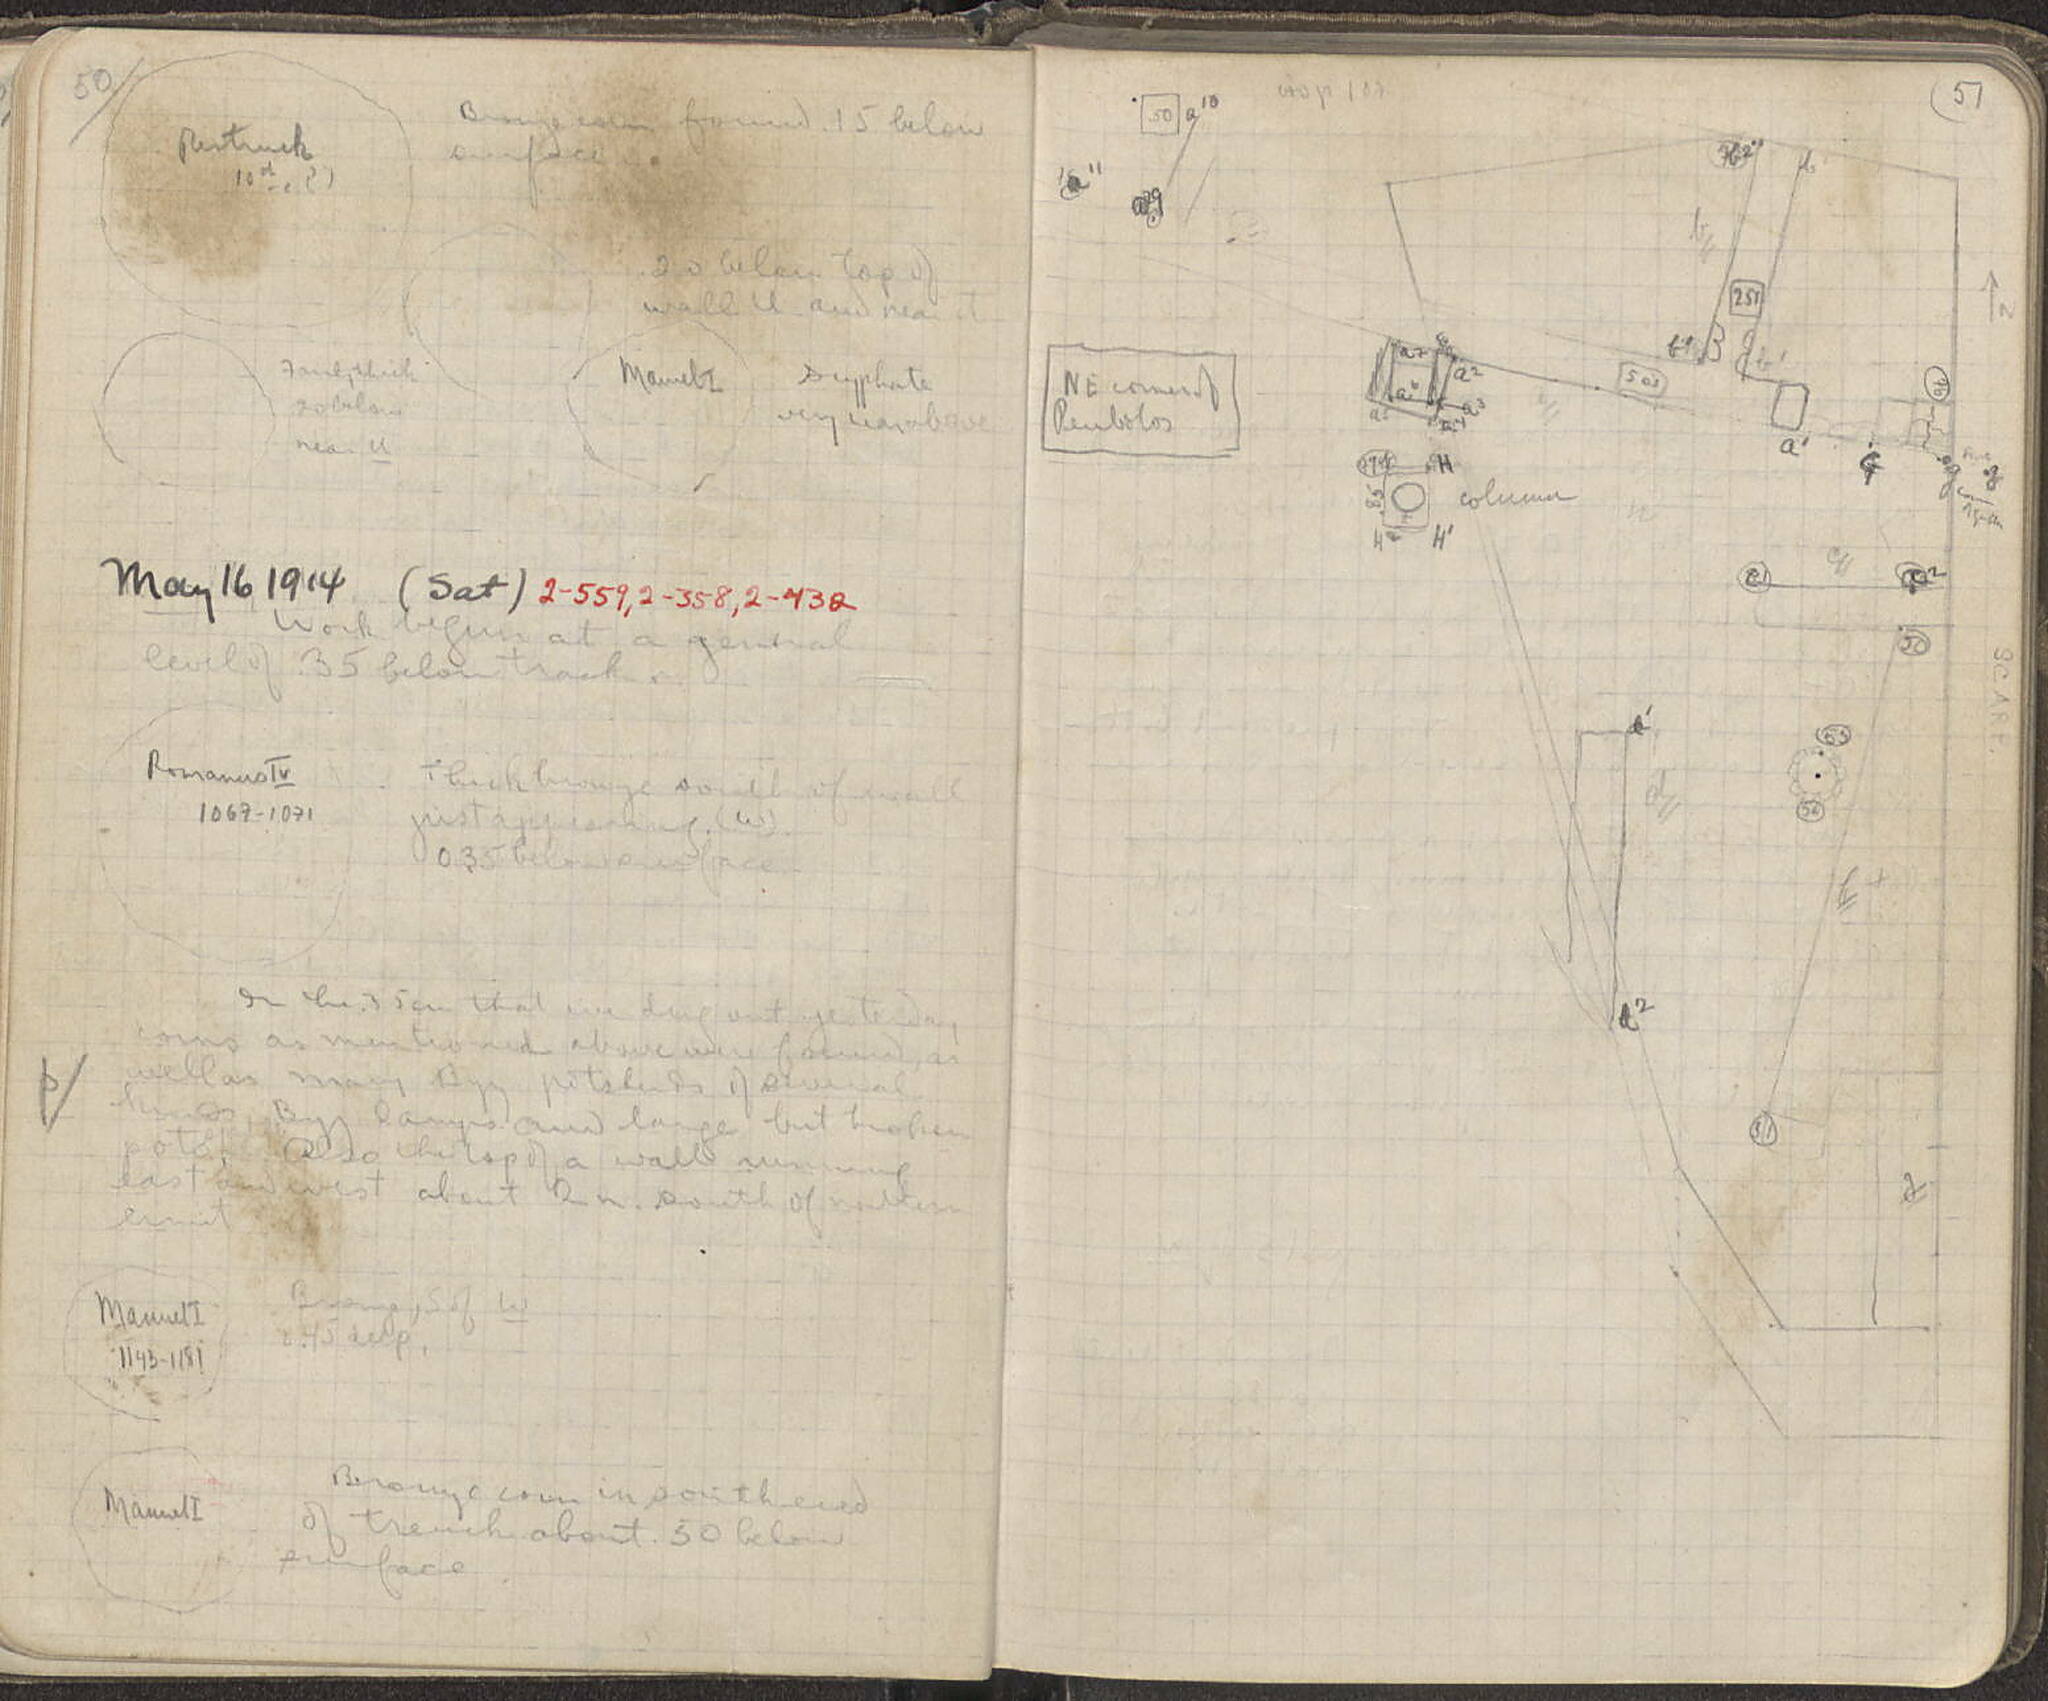 50
Restruck
10th c (?)
Bronze coin found .15 below
surface.
.20 below top of
wall U and near it
Fairly thick
20 below
near U
Manuel I
Scyphate
very near above
May 16 1914 (Sat) 2-559, 2-358, 2-432
Work begun at a general
level of .35 below track.
Romanus IV
1067-1071
Thick bronze south of wall
just appearing (W).
0.35 below surface
In the .35 cm that we dug out yesterday
coins as mentioned above were found, as
well as many Byz potsherds of several
kinds, Byz lamps and large but broken
pots. Also the top of a wall running
east and west about 2 m. south of northern
limit
p/
Manuel I
1143-1181
Bronze, S of W
0.45 deep.
Manuel I
Bronze coin in south end
of trench about .50 below
surface
51
50
a10
a11
a9
b2
b
b
251
N
B
b1
503
a7
a2
a6
a3
a5
a4
a1
NE corner of
Peribolos
H
column
H'
g
c
SCARP.
50
d'
55
d
56
f
d2
51